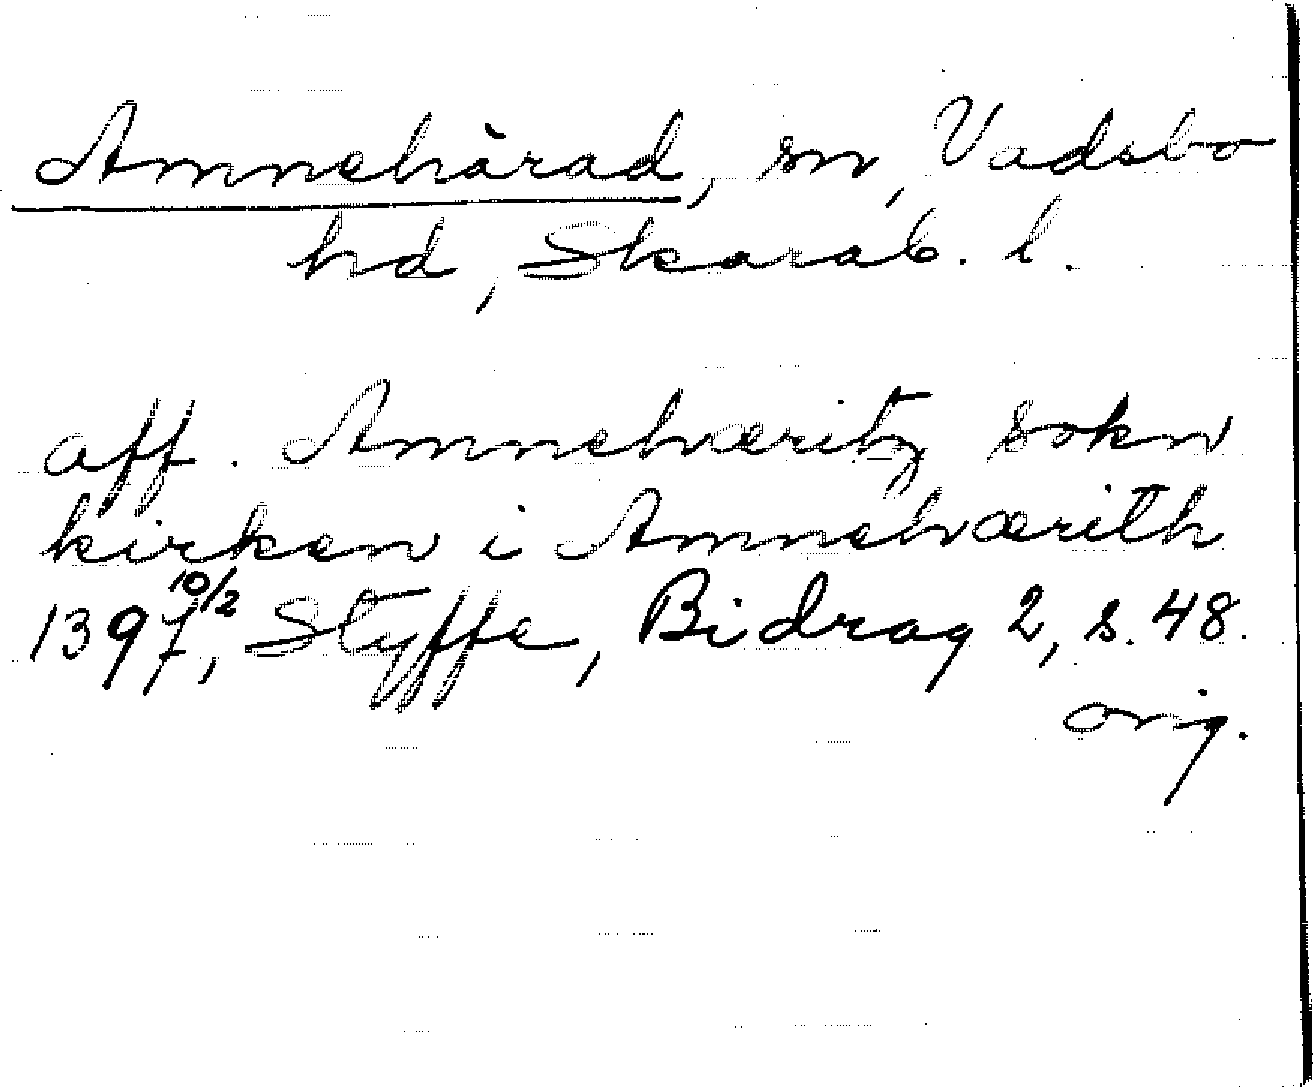 Amnehärad, sn, Vadsbo
hd, Skarab. l.
aff. Amnehæritz sokn
kirken i Amnehærith
1397 10/2, Styffe, Bidrag 2, s. 48.
orig.